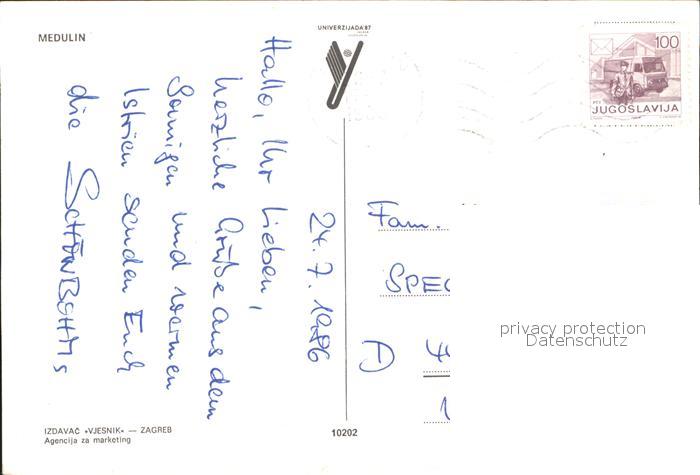 MEDULIN
UNIVERZIJADA '87
100
PTT
JUGOSLAVIJA
24. 7. 1986
Hallo, Ihr Lieben,
herzliche Grüße aus dem
sonnigen und warmen
Istrien senden Euch
die SCHÖNBOHMs
Fam.
SPEC
A
privacy protection
Datenschutz
IZDAVAČ »VJESNIK« — ZAGREB
Agencija za marketing
10202